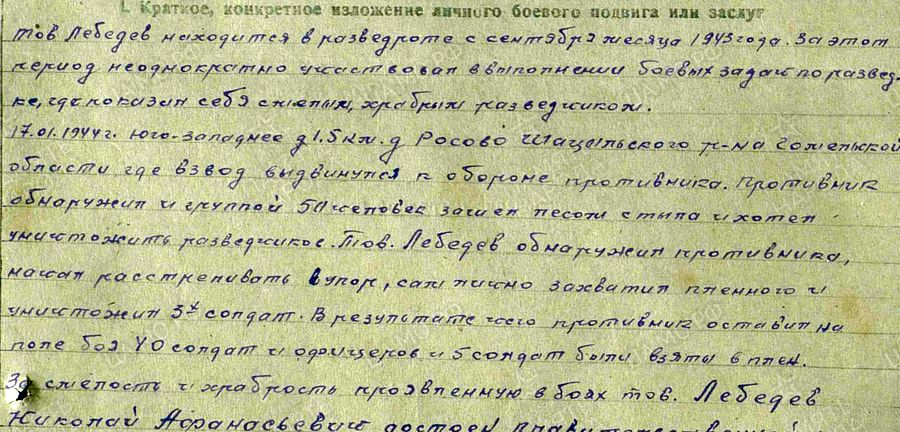 I. Краткое, конкретное изложение личного боевого подвига или заслуг
тов Лебедев находится в разведроте с сентября месяца 1943 года. За этот
период неоднократно участвовал в выполнении боевых задач по развед-
ке, где показал себя смелым, храбрым разведчиком.
17.01.1944 г. Юго-западнее 1.5 км. д Росово р-на Гомельской
области, где взвод выдвинулся к обороне противника. Противник
обнаружил и группой 50 человек зашел лесом с тыла и хотел
уничтожить разведчиков. Тов. Лебедев обнаружил противника,
начал расстреливать в упор, сам лично захватил пленного и
уничтожил 3х солдат. В результате чего противник оставил на
поле боя 40 солдат и офицеров и 5 солдат были взяты в плен.
За смелость и храбрость проявленную в боях тов. Лебедев
Николай Афанасьевич достоен